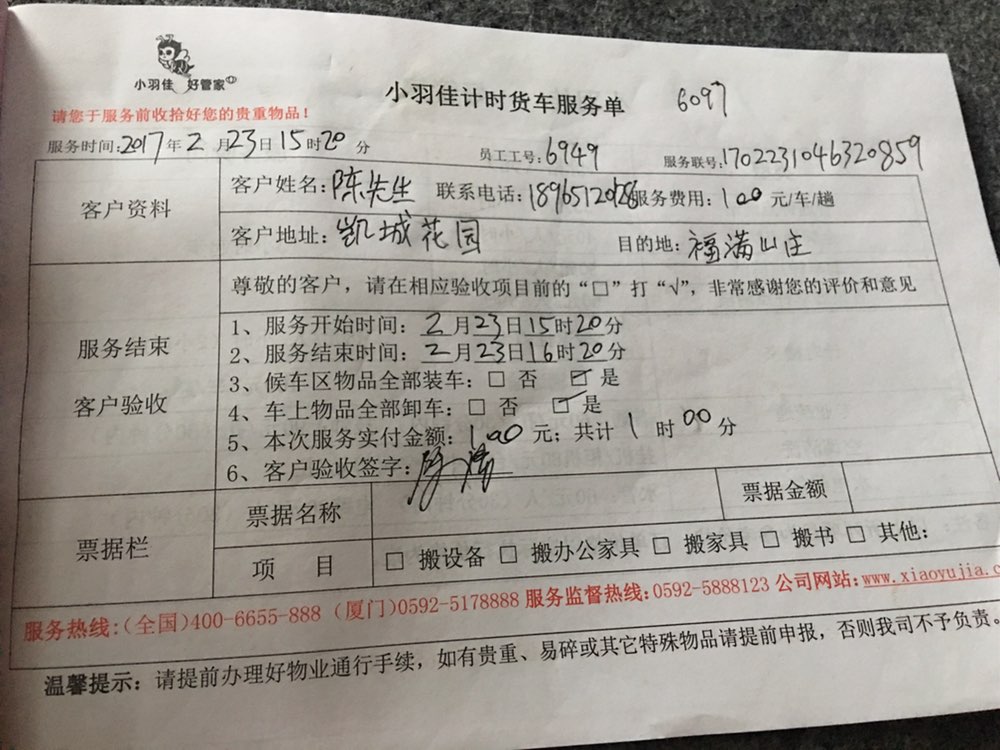 小羽佳 好管家
小羽佳计时货车服务单 6097
请您于服务前收拾好您的贵重物品！
服务时间:2017年2月23日15时20分 员工工号:6949 服务联号:1702231046320859
客户资料
客户姓名:陈先生 联系电话:18965120 服务费用:100元/车/趟
客户地址:凯城花园 目的地:福满山庄
服务结束
客户验收
尊敬的客户，请在相应验收项目前的“□”打“√”，非常感谢您的评价和意见
1、服务开始时间：2月23日15时20分
2、服务结束时间：2月23日16时20分
3、候车区物品全部装车：□ 否 ☑ 是
4、车上物品全部卸车：□ 否 ☑ 是
5、本次服务实付金额：100元；共计1时00分
6、客户验收签字：
票据栏
票据名称 票据金额
项 目 □ 搬设备 □ 搬办公家具 □ 搬家具 □ 搬书 □ 其他：
服务热线:(全国)400-6655-888 (厦门)0592-5178888 服务监督热线:0592-5888123 公司网站:www.xiaoyujia.c
温馨提示：请提前办理好物业通行手续，如有贵重、易碎或其它特殊物品请提前申报，否则我司不予负责。